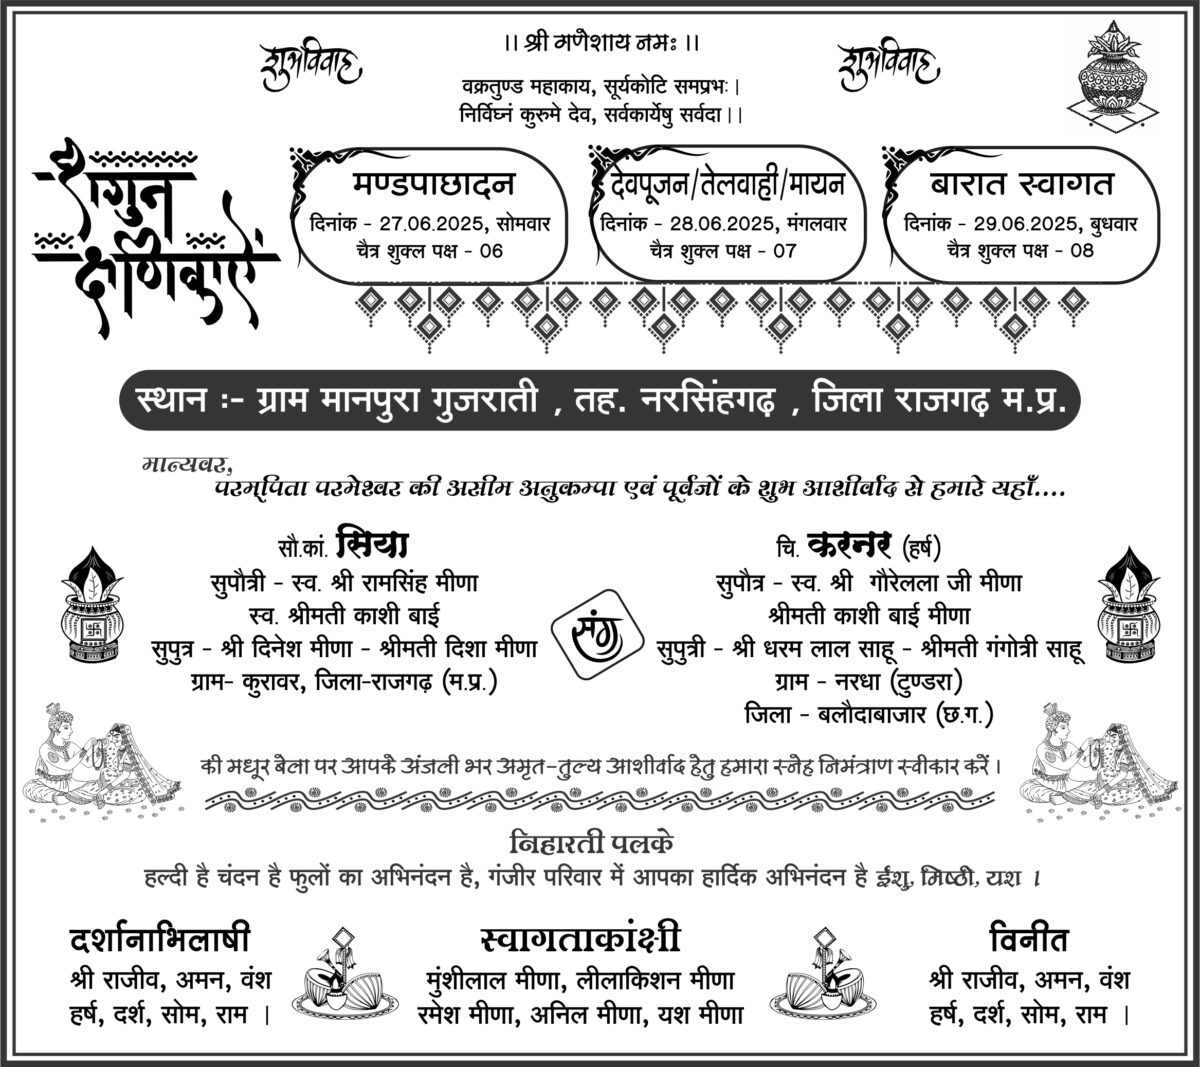 ।। श्री गणेशाय नमः ।।
शुभ विवाह
शुभ विवाह
वक्रतुण्ड महाकाय, सूर्यकोटि समप्रभः।
निर्विघ्नं कुरुमे देव, सर्वकार्येषु सर्वदा।।
शगुन
क्षणिकाऐं
मण्डपाछादन
दिनांक - 27.06.2025, सोमवार
चैत्र शुक्ल पक्ष - 06
देवपूजन/तेलवाही/मायन
दिनांक - 28.06.2025, मंगलवार
चैत्र शुक्ल पक्ष - 07
बारात स्वागत
दिनांक - 29.06.2025, बुधवार
चैत्र शुक्ल पक्ष - 08
स्थान :- ग्राम मानपुरा गुजराती , तह. नरसिंहगढ़ , जिला राजगढ़ म.प्र.
मान्यवर,
परम्पिता परमेश्वर की असीम अनुकम्पा एवं पूर्वजों के शुभ आशीर्वाद से हमारे यहाँ....
सौ.कां. सिया
सुपौत्री - स्व. श्री रामसिंह मीणा
स्व. श्रीमती काशी बाई
सुपुत्र - श्री दिनेश मीणा - श्रीमती दिशा मीणा
ग्राम- कुरावर, जिला-राजगढ़ (म.प्र.)
संग
चि. करनर (हर्ष)
सुपौत्र - स्व. श्री गौरेलला जी मीणा
श्रीमती काशी बाई मीणा
सुपुत्री - श्री धरम लाल साहू - श्रीमती गंगोत्री साहू
ग्राम - नरधा (टुण्डरा)
जिला - बलौदाबाजार (छ.ग.)
की मधूर बेला पर आपकै अंजली भर अमृत-तुल्य आशीर्वाद हेतु हमारा स्नेह निमंत्राण स्वीकार करें।
निहारती पलके
हल्दी है चंदन है फुलों का अभिनंदन है, गंजीर परिवार में आपका हार्दिक अभिनंदन है ईशु, मिष्ठी, यश ।
दर्शानाभिलाषी
श्री राजीव, अमन, वंश
हर्ष, दर्श, सोम, राम ।
स्वागताकांक्षी
मुंशीलाल मीणा, लीलाकिशन मीणा
रमेश मीणा, अनिल मीणा, यश मीणा
विनीत
श्री राजीव, अमन, वंश
हर्ष, दर्श, सोम, राम ।